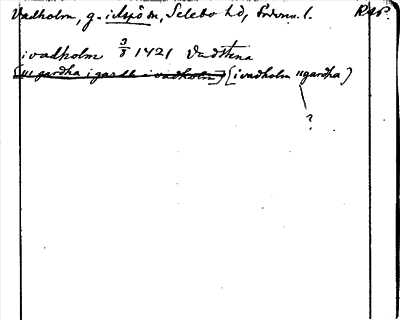 Vadholm, g. i Aspö sn, Selebo hd, Srdmnl. l. RAP.
i vadholm 3/8 1421 Vadstena
[iii gardha i gardh i vadholm] [i vadholm ii gardha]
?